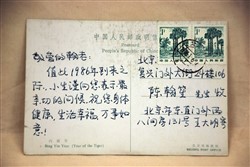 中国人民邮政明信片
People's Republic of China
敬爱的翰老:
值此1986年到来之
际,小生谨向您表示最
亲切的问候,祝您身体
健康,生活幸福,万事如
意!
北京
复兴门外大街22楼106
陈翰笙 先生 收
北京东直门外
八间房131号王大明寄
Ming Yin Tiger (Year of the Tiger)